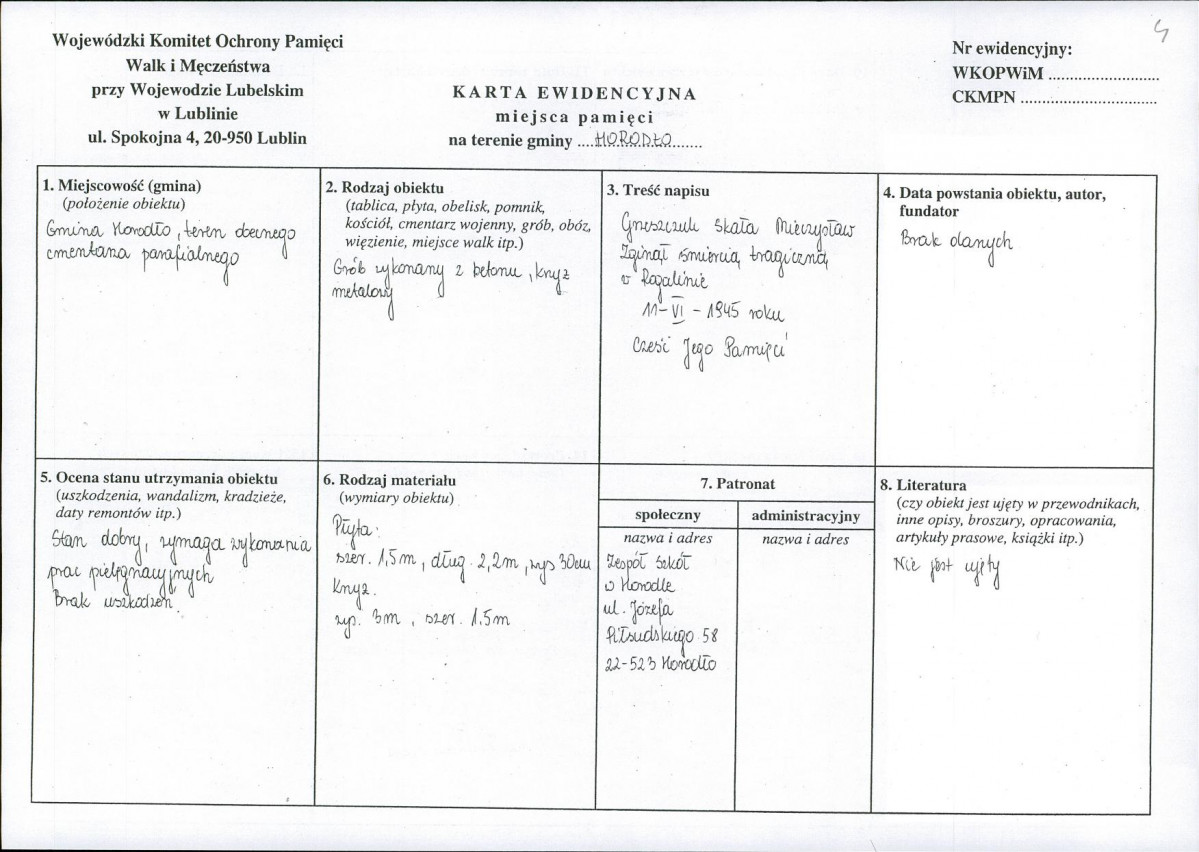 Wojewódzki Komitet Ochrony Pamięci
Walk i Męczeństwa
przy Wojewodzie Lubelskim
w Lublinie
ul. Spokojna 4, 20-950 Lublin
KARTA EWIDENCYJNA
miejsca pamięci
na terenie gminy ....HORODŁO.......
Nr ewidencyjny:
WKOPWiM ..........................
CKMPN ................................
1. Miejscowość (gmina)
(położenie obiektu)
Gmina Horodło, teren obecnego
cmentarza parafialnego
2. Rodzaj obiektu
(tablica, płyta, obelisk, pomnik,
kościół, cmentarz wojenny, grób, obóz,
więzienie, miejsce walk itp.)
Grób wykonany z betonu, krzyż
metalowy
3. Treść napisu
Gruszczuk Skała Mieczysław
Zginął śmiercią tragiczną
w Rogalinie
11-VI-1945 roku
Cześć Jego Pamięci
4. Data powstania obiektu, autor,
fundator
Brak danych
5. Ocena stanu utrzymania obiektu
(uszkodzenia, wandalizm, kradzieże,
daty remontów itp.)
Stan dobry, wymaga wykonania
prac pielęgnacyjnych
Brak uszkodzeń.
6. Rodzaj materiału
(wymiary obiektu)
Płyta:
szer. 1,5m, dług. 2,2m, wys 30cm
Krzyż.
wys. 3m, szer. 1,5m
7. Patronat
społeczny
nazwa i adres
Zespół Szkół
w Horodle
ul. Józefa
Piłsudskiego 58
22-523 Horodło
administracyjny
nazwa i adres
8. Literatura
(czy obiekt jest ujęty w przewodnikach,
inne opisy, broszury, opracowania,
artykuły prasowe, książki itp.)
Nie jest ujęty